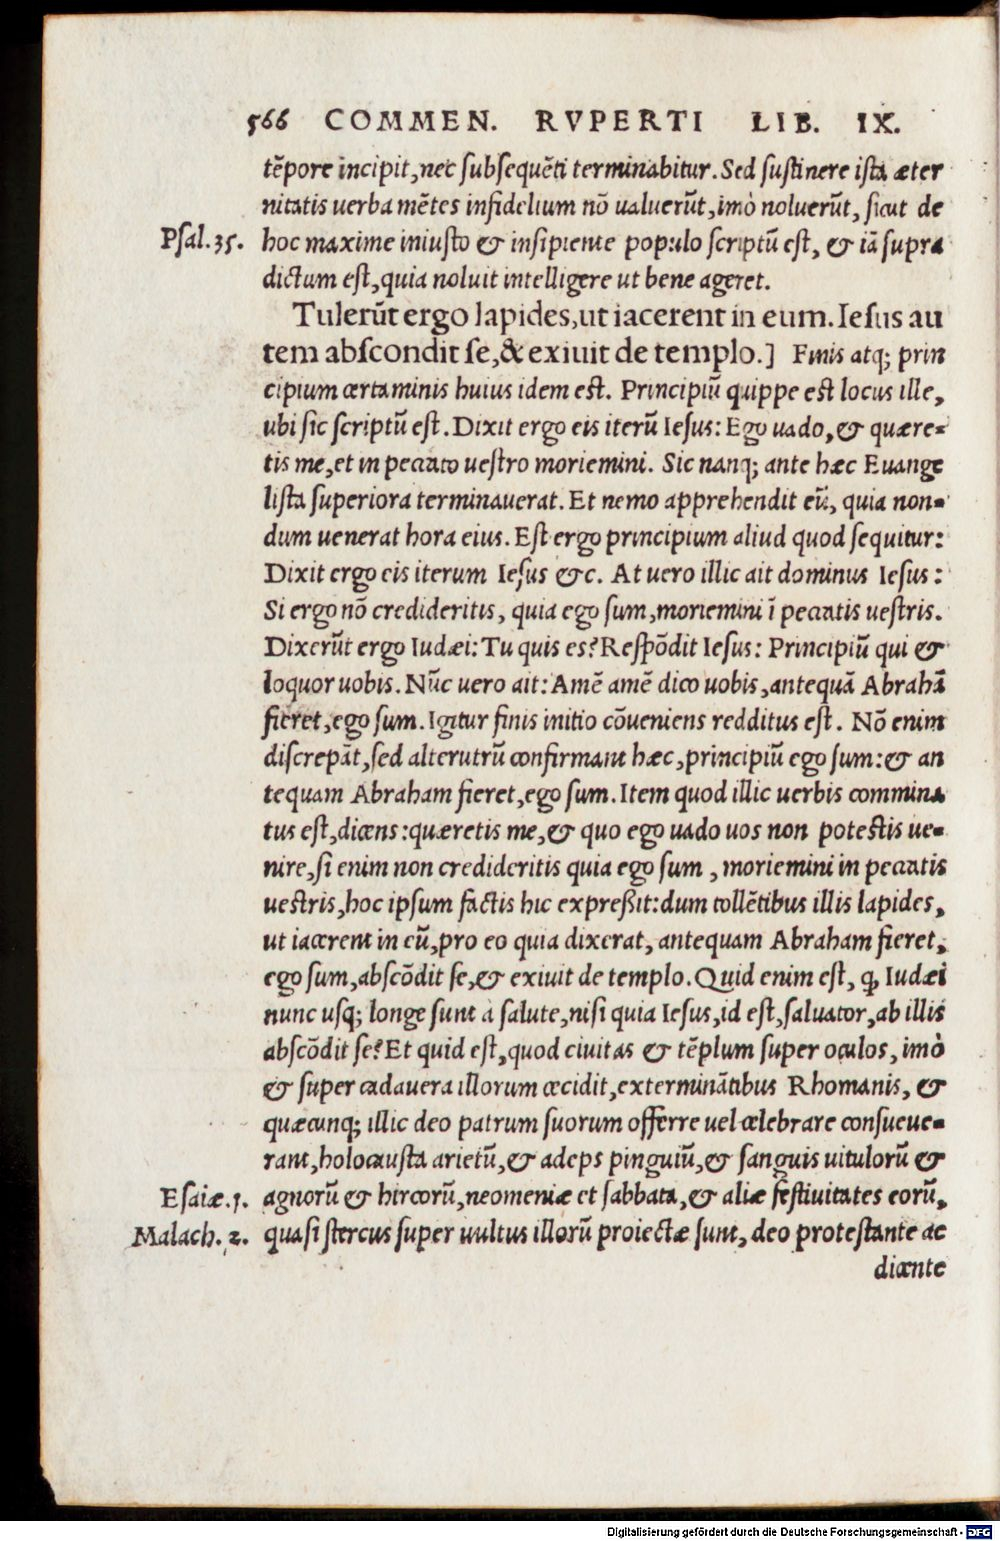 566 COMMEN. RVPERTI LIB. IX.
tēpore incipit, nec subsequēti terminabitur. Sed sustinere ista æter
nitatis uerba mētes infidelium nō ualuerūt, imò noluerūt, sicut de
Psal. 35. hoc maxime iniusto & insipiente populo scriptū est, & iā supra
dictum est, quia noluit intelligere ut bene ageret.
Tulerūt ergo lapides, ut iacerent in eum. Iesus au
tem abscondit se, & exiuit de templo.] Finis atq; prin
cipium certaminis huius idem est. Principiū quippe est locus ille,
ubi sic scriptū est. Dixit ergo eis iterū Iesus: Ego uado, & quære-
tis me, et in peccato uestro moriemini. Sic nanq; ante hæc Euange
lista superiora terminauerat. Et nemo apprehendit eū, quia non-
dum uenerat hora eius. Est ergo principium aliud quod sequitur:
Dixit ergo eis iterum Iesus &c. At uero illic ait dominus Iesus:
Si ergo nō credideritis, quia ego sum, moriemini ī peccatis uestris.
Dixerūt ergo Iudæi: Tu quis es? Respōdit Iesus: Principiū qui &
loquor uobis. Nūc uero ait: Amē amē dico uobis, antequā Abrahā
fieret, ego sum. Igitur finis initio cōueniens redditus est. Nō enim
discrepāt, sed alterutrū confirmant hæc, principiū ego sum: & an
tequam Abraham fieret, ego sum. Item quod illic uerbis commina
tus est, dicens: quæretis me, & quo ego uado uos non potestis ue-
nire, si enim non credideritis quia ego sum, moriemini in peccatis
uestris, hoc ipsum factis hic expreßit: dum tollētibus illis lapides,
ut iacerent in eū, pro eo quia dixerat, antequam Abraham fieret,
ego sum, abscōdit se, & exiuit de templo. Quid enim est, ꝙ Iudæi
nunc usq; longe sunt à salute, nisi quia Iesus, id est, saluator, ab illis
abscōdit se? Et quid est, quod ciuitas & tēplum super oculos, imò
& super cadauera illorum cecidit, exterminātibus Rhomanis, &
quæcunq; illic deo patrum suorum offerre uel celebrare consueue-
rant, holocausta arietū, & adeps pinguiū, & sanguis uitulorū &
Esaiæ. 1. agnorū & hircorū, neomeniæ et sabbata, & aliæ festiuitates eorū,
Malach. 2. quasi stercus super uultus illorū proiectæ sunt, deo protestante ac
dicente
Digitalisierung gefördert durch die Deutsche Forschungsgemeinschaft - DFG